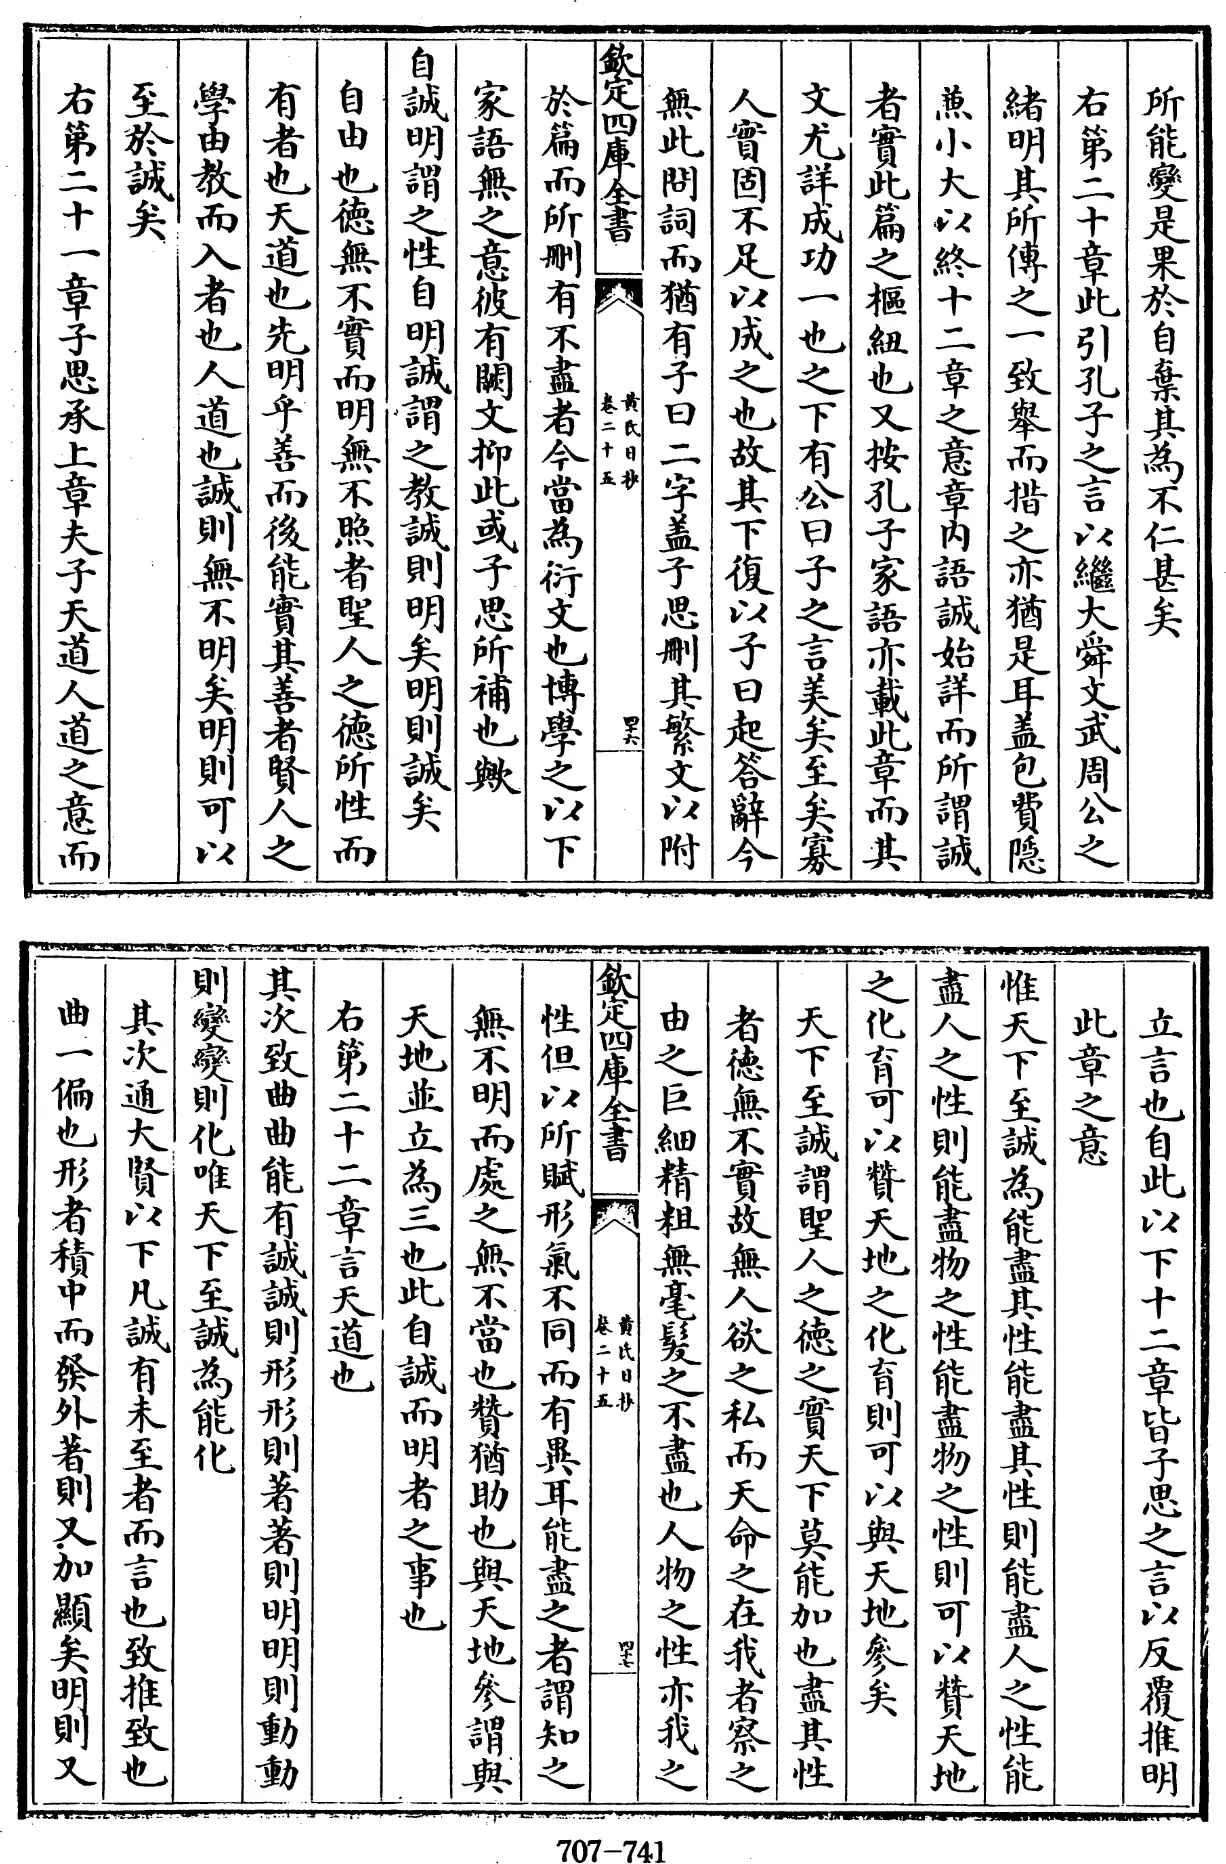 所能變是果於自棄其為不仁甚矣
右第二十章此引孔子之言以繼大舜文武周公之
緒明其所傳之一致舉而措之亦猶是耳盖包費隠
兼小大以終十二章之意章内語誠始詳而所謂誠
者實此篇之樞紐也又按孔子家語亦載此章而其
文尤詳成功一也之下有公曰子之言美矣至矣寡
人實固不足以成之也故其下復以子曰起答辭今
無此問詞而猶有子曰二字盖子思刪其繁文以附
欽定四庫全書
黄氏日抄
卷二十五
四十六
於篇而所刪有不盡者今當為衍文也博學之以下
家語無之意彼有闕文抑此或子思所補也歟
自誠明謂之性自明誠謂之教誠則明矣明則誠矣
自由也徳無不實而明無不照者聖人之徳所性而
有者也天道也先明乎善而後能實其善者賢人之
學由教而入者也人道也誠則無不明矣明則可以
至於誠矣
右第二十一章子思承上章夫子天道人道之意而
立言也自此以下十二章皆子思之言以反覆推明
此章之意
惟天下至誠為能盡其性能盡其性則能盡人之性能
盡人之性則能盡物之性能盡物之性則可以贊天地
之化育可以贊天地之化育則可以與天地參矣
天下至誠謂聖人之徳之實天下莫能加也盡其性
者徳無不實故無人欲之私而天命之在我者察之
由之巨細精粗無毫髮之不盡也人物之性亦我之
欽定四庫全書
黄氏日抄
卷二十五
四十七
性但以所賦形氣不同而有異耳能盡之者謂知之
無不明而處之無不當也贊猶助也與天地參謂與
天地並立為三也此自誠而明者之事也
右第二十二章言天道也
其次致曲曲能有誠誠則形形則著著則明明則動動
則變變則化唯天下至誠為能化
其次通大賢以下凡誠有未至者而言也致推致也
曲一偏也形者積中而發外著則又加顯矣明則又
707-741